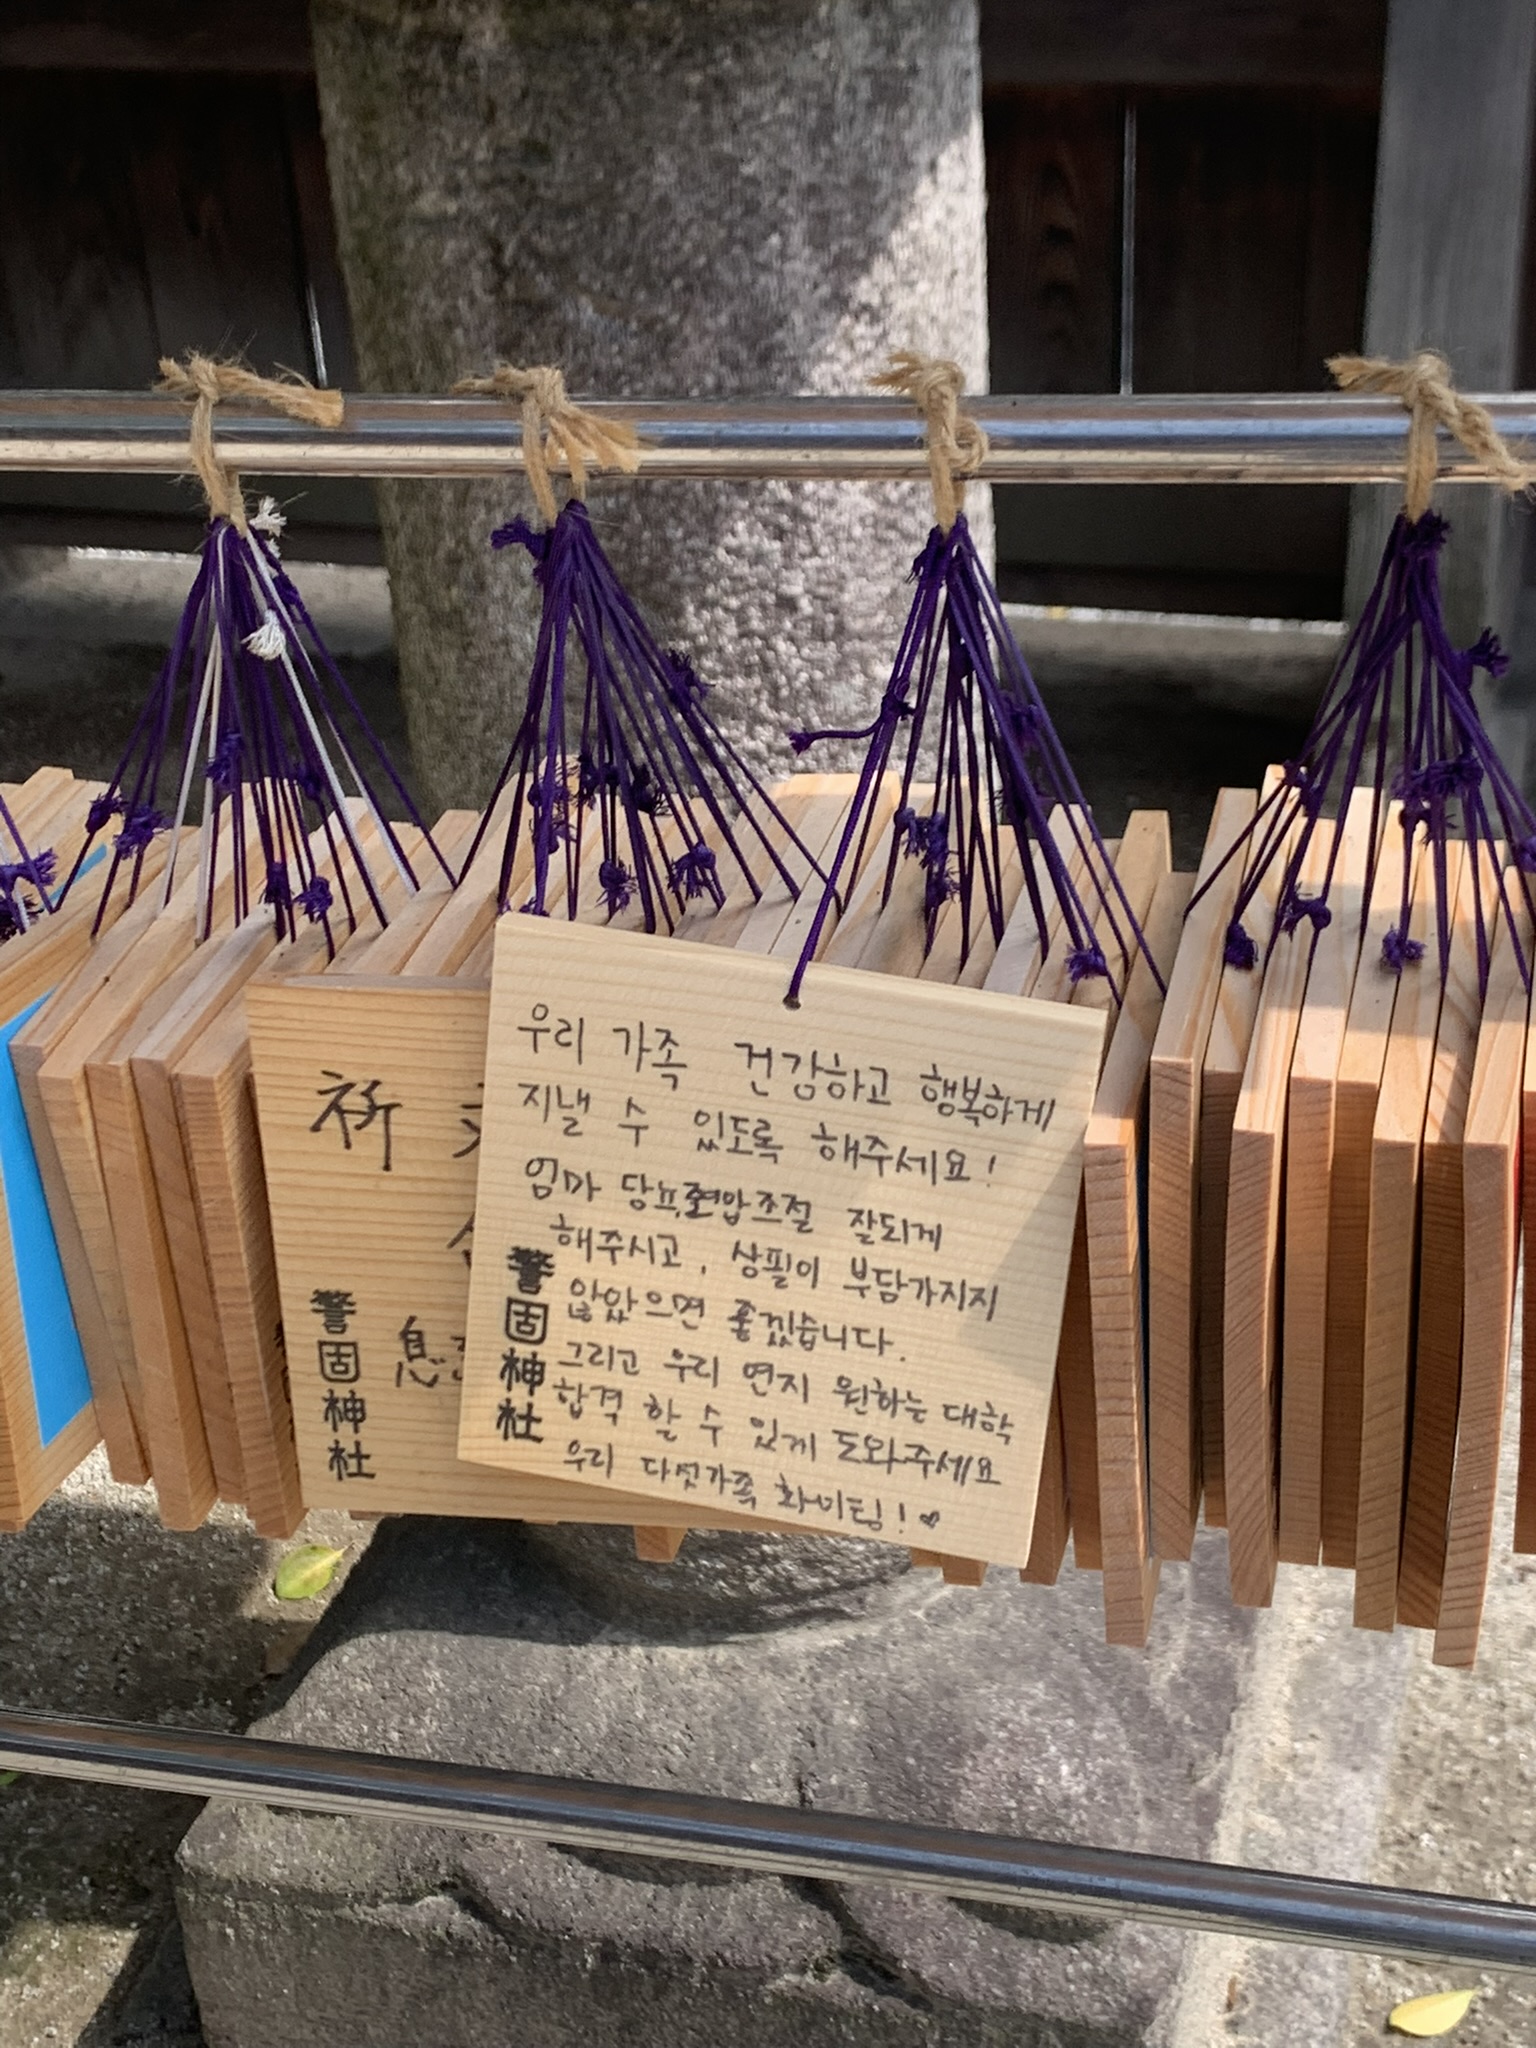 우리 가족 건강하고 행복하게
지낼 수 있도록 해주세요!
엄마 당뇨,혈압조절 잘되게
해주시고, 상필이 부담가지지
않았으면 좋겠습니다.
그리고 우리 연지 원하는 대학
합격 할 수 있게 도와주세요
우리 다섯가족 화이팅!♥
警固神社
祈
息
警固神社